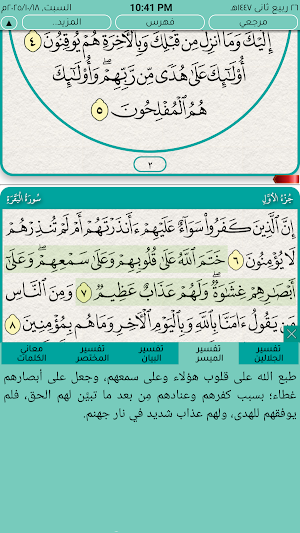 السبت، ٢٠٢٥/١٠/١٨م 10:41 PM ٢٦ ربيع ثانى ١٤٤٧هـ
مرجعي فهرس المزيد... ▲
إِلَيْكَ وَمَا أُنزِلَ مِن قَبْلِكَ وَبِالْآخِرَةِ هُمْ يُوقِنُونَ ٤
أُوْلَٰئِكَ عَلَىٰ هُدًى مِّن رَّبِّهِمْ ۖ وَأُوْلَٰئِكَ
هُمُ الْمُفْلِحُونَ ٥
٢
جُزْءُ الأَوَّلِ سُورَةُ الْبَقَرَةِ
إِنَّ الَّذِينَ كَفَرُوا سَوَاءٌ عَلَيْهِمْ ءَأَنذَرْتَهُمْ أَمْ لَمْ تُنذِرْهُمْ
لَا يُؤْمِنُونَ ٦ خَتَمَ اللَّهُ عَلَىٰ قُلُوبِهِمْ وَعَلَىٰ سَمْعِهِمْ ۖ وَعَلَىٰ
أَبْصَارِهِمْ غِشَاوَةٌ ۖ وَلَهُمْ عَذَابٌ عَظِيمٌ ٧ وَمِنَ النَّاسِ
مَن يَقُولُ ءَامَنَّا بِاللَّهِ وَبِالْيَوْمِ الْآخِرِ وَمَا هُم بِمُؤْمِنِينَ ٨
تفسير الجلالين تفسير الميسر تفسير البيان تفسير المختصر معاني الكلمات
طبع الله على قلوب هؤلاء وعلى سمعهم، وجعل على أبصارهم
غطاء؛ بسبب كفرهم وعنادهم مِن بعد ما تبيَّن لهم الحق، فلم
يوفقهم للهدى، ولهم عذاب شديد في نار جهنم.